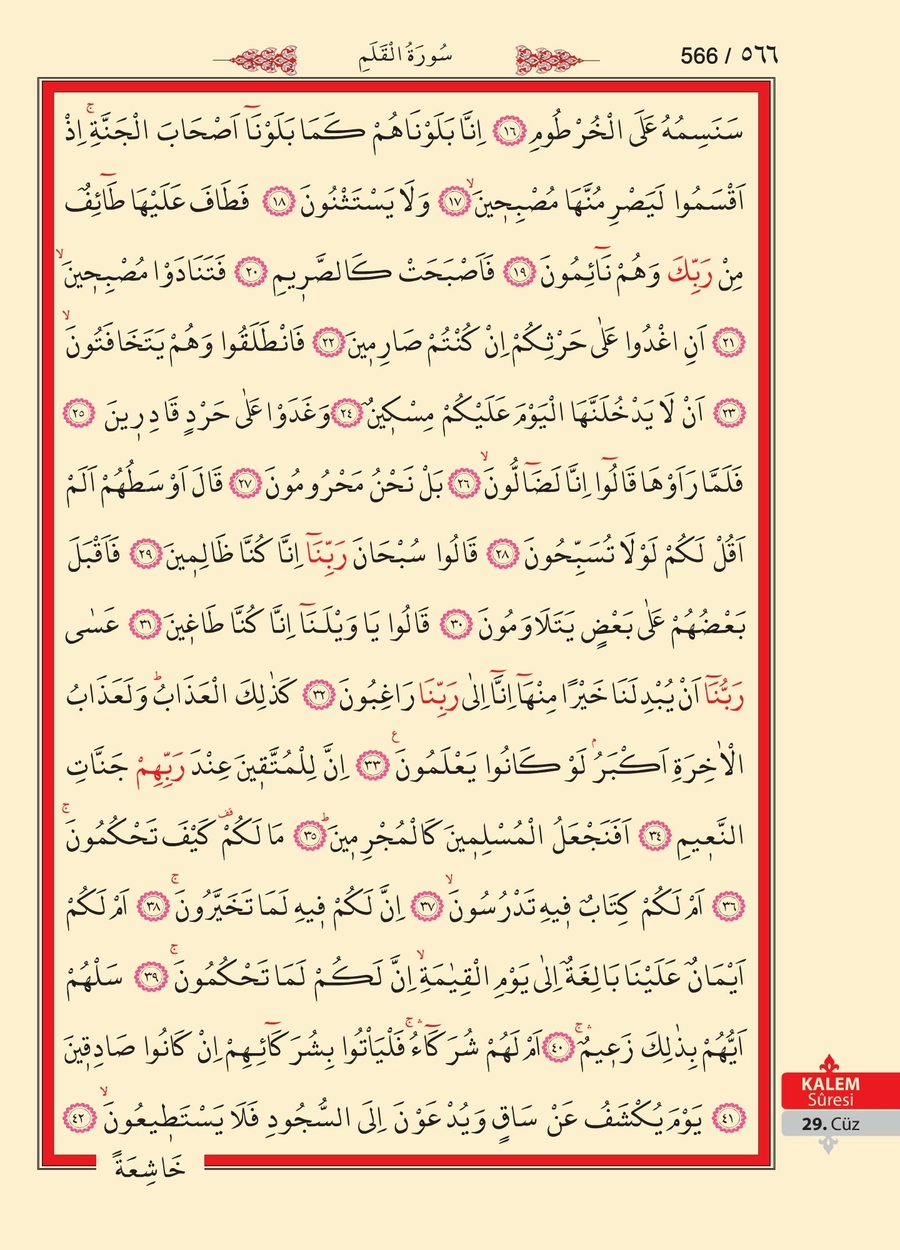 566 / ٥٦٦
سُورَةُ الْقَلَمِ
سَنَسِمُهُ عَلَى الْخُرْطُومِ ﴿١٦﴾ اِنَّا بَلَوْنَاهُمْ كَمَا بَلَوْنَٓا اَصْحَابَ الْجَنَّةِۚ اِذْ
اَقْسَمُوا لَيَصْرِمُنَّهَا مُصْبِح۪ينَۙ ﴿١٧﴾ وَلَا يَسْتَثْنُونَ ﴿١٨﴾ فَطَافَ عَلَيْهَا طَٓائِفٌ
مِنْ رَبِّكَ وَهُمْ نَٓائِمُونَ ﴿١٩﴾ فَاَصْبَحَتْ كَالصَّر۪يمِ ﴿٢٠﴾ فَتَنَادَوْا مُصْبِح۪ينَۙ
﴿٢١﴾ اَنِ اغْدُوا عَلٰى حَرْثِكُمْ اِنْ كُنْتُمْ صَارِم۪ينَ ﴿٢٢﴾ فَانْطَلَقُوا وَهُمْ يَتَخَافَتُونَۙ
﴿٢٣﴾ اَنْ لَا يَدْخُلَنَّهَا الْيَوْمَ عَلَيْكُمْ مِسْك۪ينٌ ﴿٢٤﴾ وَغَدَوْا عَلٰى حَرْدٍ قَادِر۪ينَ ﴿٢٥﴾
فَلَمَّا رَاَوْهَا قَالُٓوا اِنَّا لَضَٓالُّونَۙ ﴿٢٦﴾ بَلْ نَحْنُ مَحْرُومُونَ ﴿٢٧﴾ قَالَ اَوْسَطُهُمْ اَلَمْ
اَقُلْ لَكُمْ لَوْلَا تُسَبِّحُونَ ﴿٢٨﴾ قَالُوا سُبْحَانَ رَبِّنَٓا اِنَّا كُنَّا ظَالِم۪ينَ ﴿٢٩﴾ فَاَقْبَلَ
بَعْضُهُمْ عَلٰى بَعْضٍ يَتَلَاوَمُونَ ﴿٣٠﴾ قَالُوا يَا وَيْلَنَٓا اِنَّا كُنَّا طَاغ۪ينَ ﴿٣١﴾ عَسٰى
رَبُّنَٓا اَنْ يُبْدِلَنَا خَيْرًا مِنْهَٓا اِنَّٓا اِلٰى رَبِّنَا رَاغِبُونَ ﴿٣٢﴾ كَذٰلِكَ الْعَذَابُۜ وَلَعَذَابُ
الْاٰخِرَةِ اَكْبَرُۢ لَوْ كَانُوا يَعْلَمُونَ۟ ﴿٣٣﴾ اِنَّ لِلْمُتَّق۪ينَ عِنْدَ رَبِّهِمْ جَنَّاتِ
النَّع۪يمِ ﴿٣٤﴾ اَفَنَجْعَلُ الْمُسْلِم۪ينَ كَالْمُجْرِم۪ينَۜ ﴿٣٥﴾ مَا لَكُمْ۠ كَيْفَ تَحْكُمُونَۚ
﴿٣٦﴾ اَمْ لَكُمْ كِتَابٌ ف۪يهِ تَدْرُسُونَۙ ﴿٣٧﴾ اِنَّ لَكُمْ ف۪يهِ لَمَا تَخَيَّرُونَۚ ﴿٣٨﴾ اَمْ لَكُمْ
اَيْمَانٌ عَلَيْنَا بَالِغَةٌ اِلٰى يَوْمِ الْقِيٰمَةِۙ اِنَّ لَكُمْ لَمَا تَحْكُمُونَۚ ﴿٣٩﴾ سَلْهُمْ
اَيُّهُمْ بِذٰلِكَ زَع۪يمٌۚۛ ﴿٤٠﴾ اَمْ لَهُمْ شُرَكَٓاءُۚۛ فَلْيَأْتُوا بِشُرَكَٓائِهِمْ اِنْ كَانُوا صَادِق۪ينَ
﴿٤١﴾ يَوْمَ يُكْشَفُ عَنْ سَاقٍ وَيُدْعَوْنَ اِلَى السُّجُودِ فَلَا يَسْتَط۪يعُونَۙ ﴿٤٢﴾
خَاشِعَةً
KALEM
Sûresi
29. Cüz